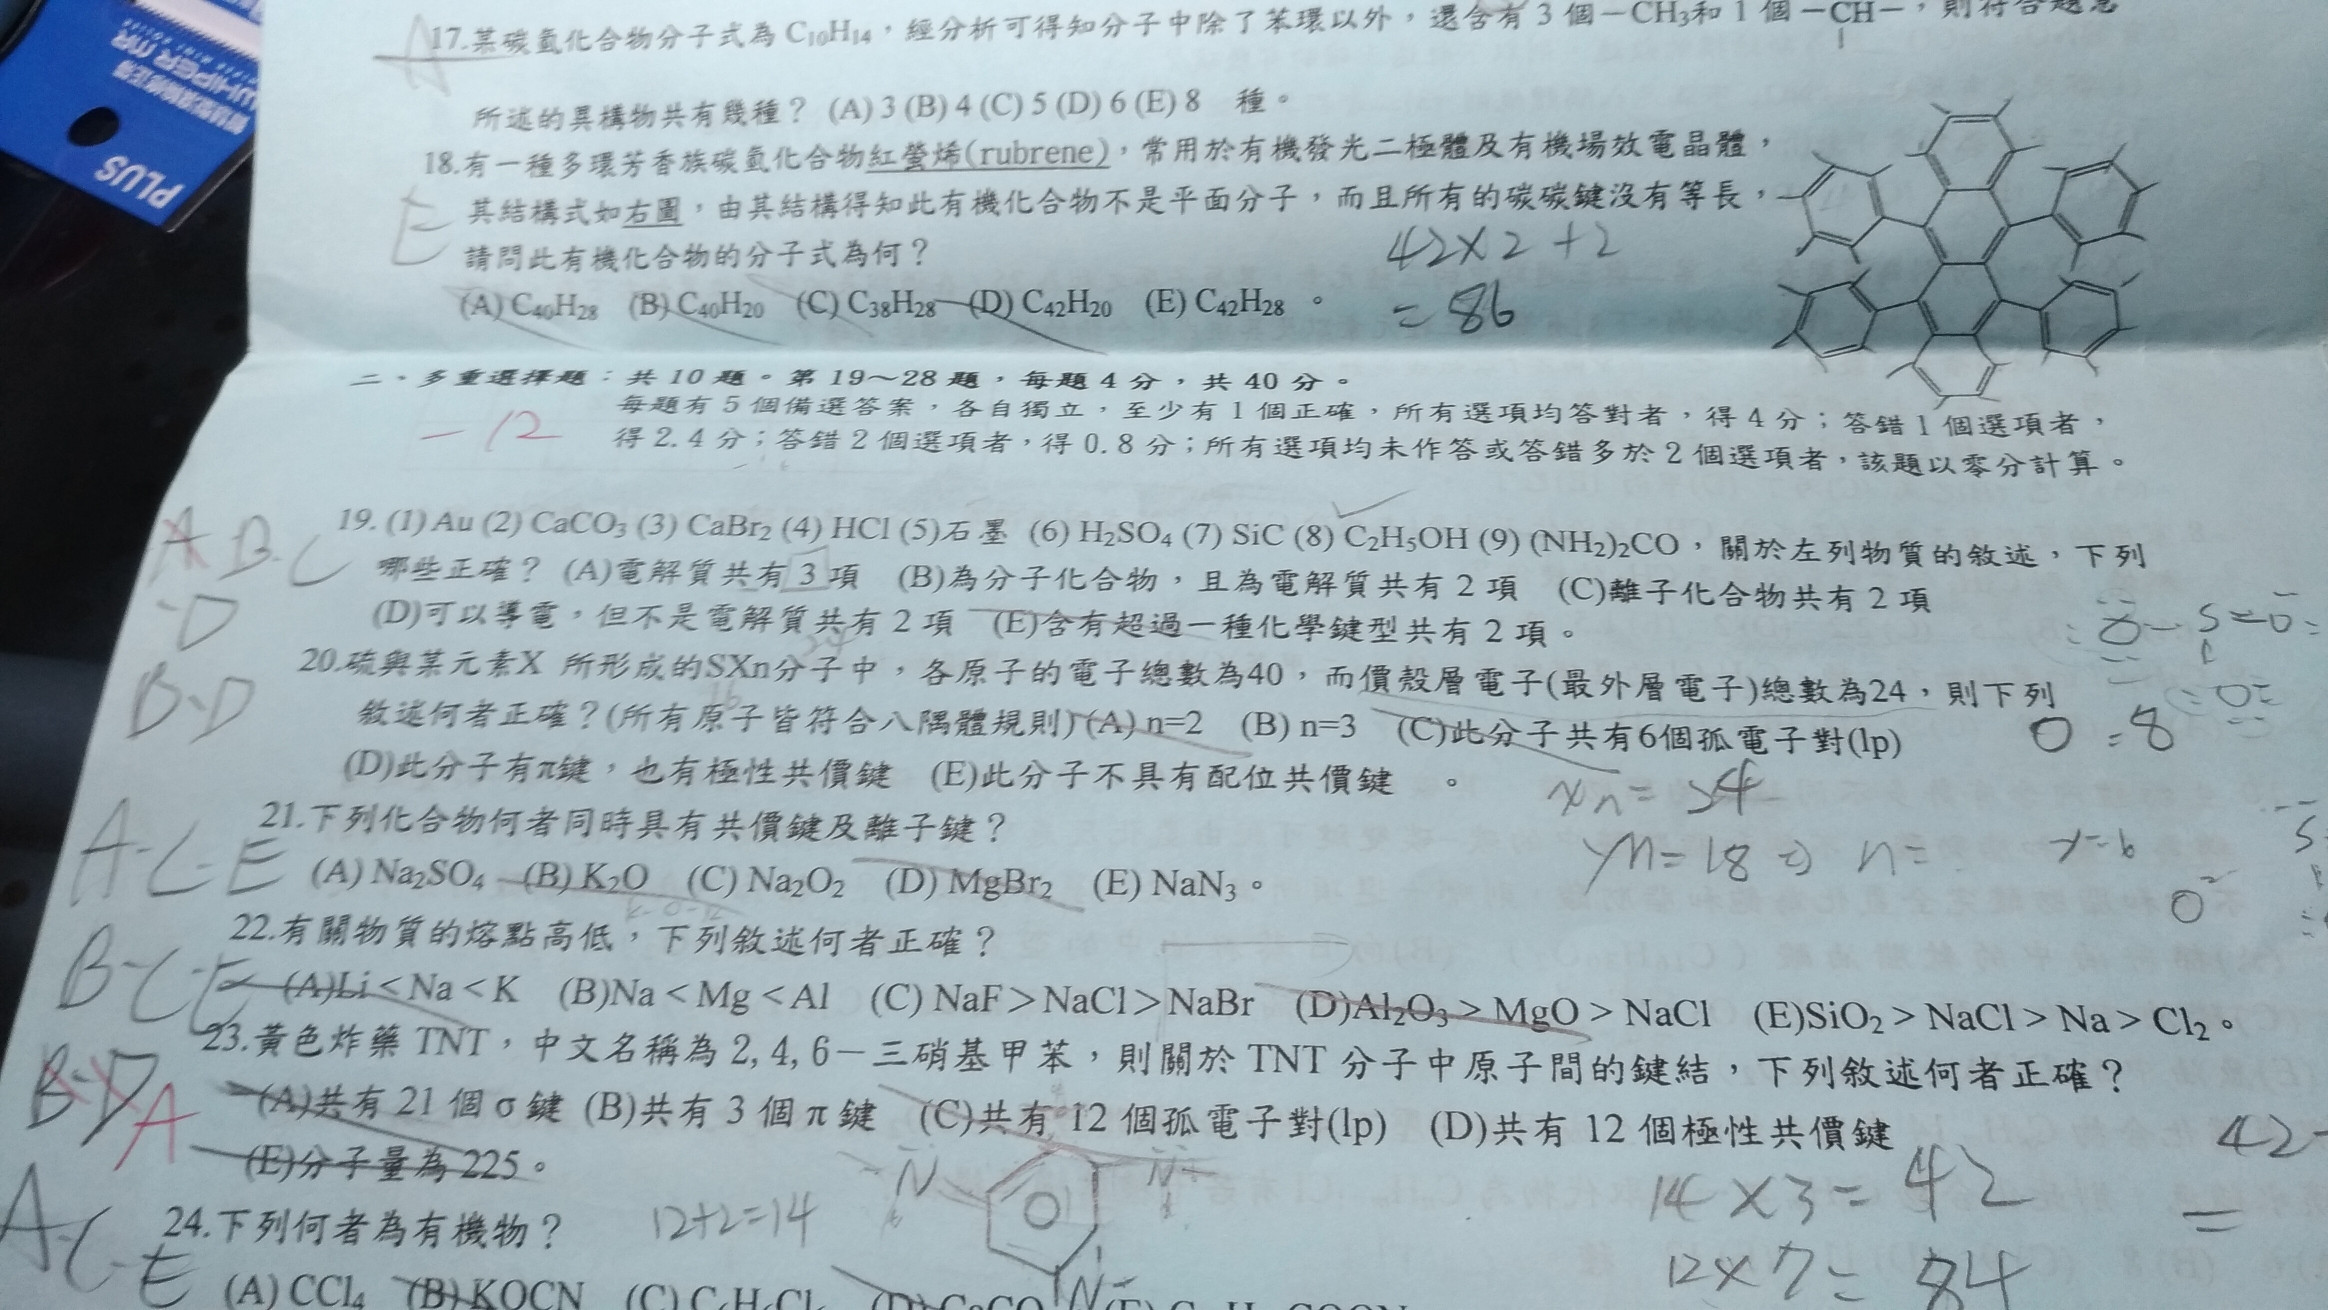 PLUS
WHIPER MR
A
17.某碳氫化合物分子式為C₁₀H₁₄，經分析可得知分子中除了苯環以外，還含有3個－CH₃和1個－CH－，則符合題意
所述的異構物共有幾種？ (A) 3 (B) 4 (C) 5 (D) 6 (E) 8 種。
18.有一種多環芳香族碳氫化合物紅螢烯(rubrene)，常用於有機發光二極體及有機場效電晶體，
E
其結構式如右圖，由其結構得知此有機化合物不是平面分子，而且所有的碳碳鍵沒有等長，
請問此有機化合物的分子式為何？
42×2+2
=86
(A) C₄₀H₂₈ (B) C₄₀H₂₀ (C) C₃₈H₂₈ (D) C₄₂H₂₀ (E) C₄₂H₂₈ 。
二、多重選擇題：共10題。第19～28題，每題4分，共40分。
-12
每題有5個備選答案，各自獨立，至少有1個正確，所有選項均答對者，得4分；答錯1個選項者，
得2.4分；答錯2個選項者，得0.8分；所有選項均未作答或答錯多於2個選項者，該題以零分計算。
A B-C
-D
19. (1) Au (2) CaCO₃ (3) CaBr₂ (4) HCl (5)石墨 (6) H₂SO₄ (7) SiC (8) C₂H₅OH (9) (NH₂)₂CO，關於左列物質的敘述，下列
哪些正確？ (A)電解質共有3項 (B)為分子化合物，且為電解質共有2項 (C)離子化合物共有2項
(D)可以導電，但不是電解質共有2項 (E)含有超過一種化學鍵型共有2項。
B-D
20.硫與某元素X 所形成的SXn分子中，各原子的電子總數為40，而價殼層電子(最外層電子)總數為24，則下列
敘述何者正確？(所有原子皆符合八隅體規則) (A) n=2 (B) n=3 (C)此分子共有6個孤電子對(lp)
O=8
(D)此分子有π鍵，也有極性共價鍵 (E)此分子不具有配位共價鍵 。
A-C-E
21.下列化合物何者同時具有共價鍵及離子鍵？
(A) Na₂SO₄ (B) K₂O (C) Na₂O₂ (D) MgBr₂ (E) NaN₃。
B-C-E
22.有關物質的熔點高低，下列敘述何者正確？
(A)Li＜Na＜K (B)Na＜Mg＜Al (C) NaF＞NaCl＞NaBr (D)Al₂O₃＞MgO＞NaCl (E)SiO₂＞NaCl＞Na＞Cl₂。
B-D
A
23.黃色炸藥TNT，中文名稱為2, 4, 6－三硝基甲苯，則關於TNT分子中原子間的鍵結，下列敘述何者正確？
(A)共有21個σ鍵 (B)共有3個π鍵 (C)共有12個孤電子對(lp) (D)共有12個極性共價鍵
(E)分子量為225。
A-C-E
24.下列何者為有機物？
12+2=14
14×3=42
12×7=84
(A) CCl₄ (B) KOCN